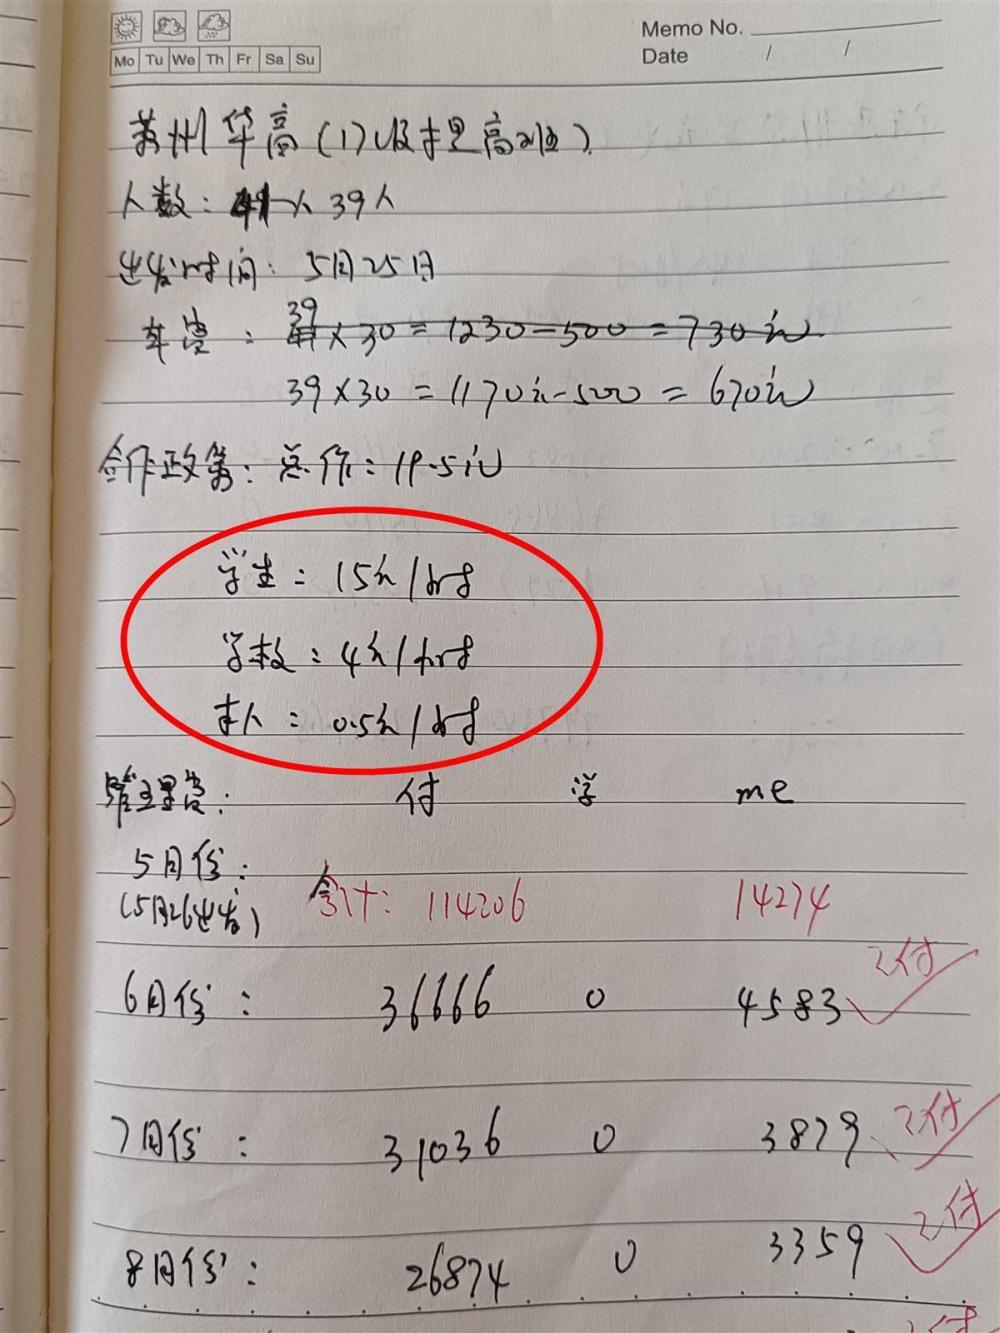 Memo No.
Date / /
Mo Tu We Th Fr Sa Su
苏州华高(1)
人数: 41人 39人
出发时间: 5月25日
车费: 41 39 ×30=1230-500=730元
39×30=1170元-500=670元
合作政策: 总价: 19.5元
学生: 15元/小时
学校: 4元/小时
本人: 0.5元/小时
管理费: 付 学 me
5月份:
(5月26出发) 合计: 114206 14274
6月份: 36666 0 4583 已付
7月份: 31036 0 3879 已付
8月份: 26874 0 3359 已付